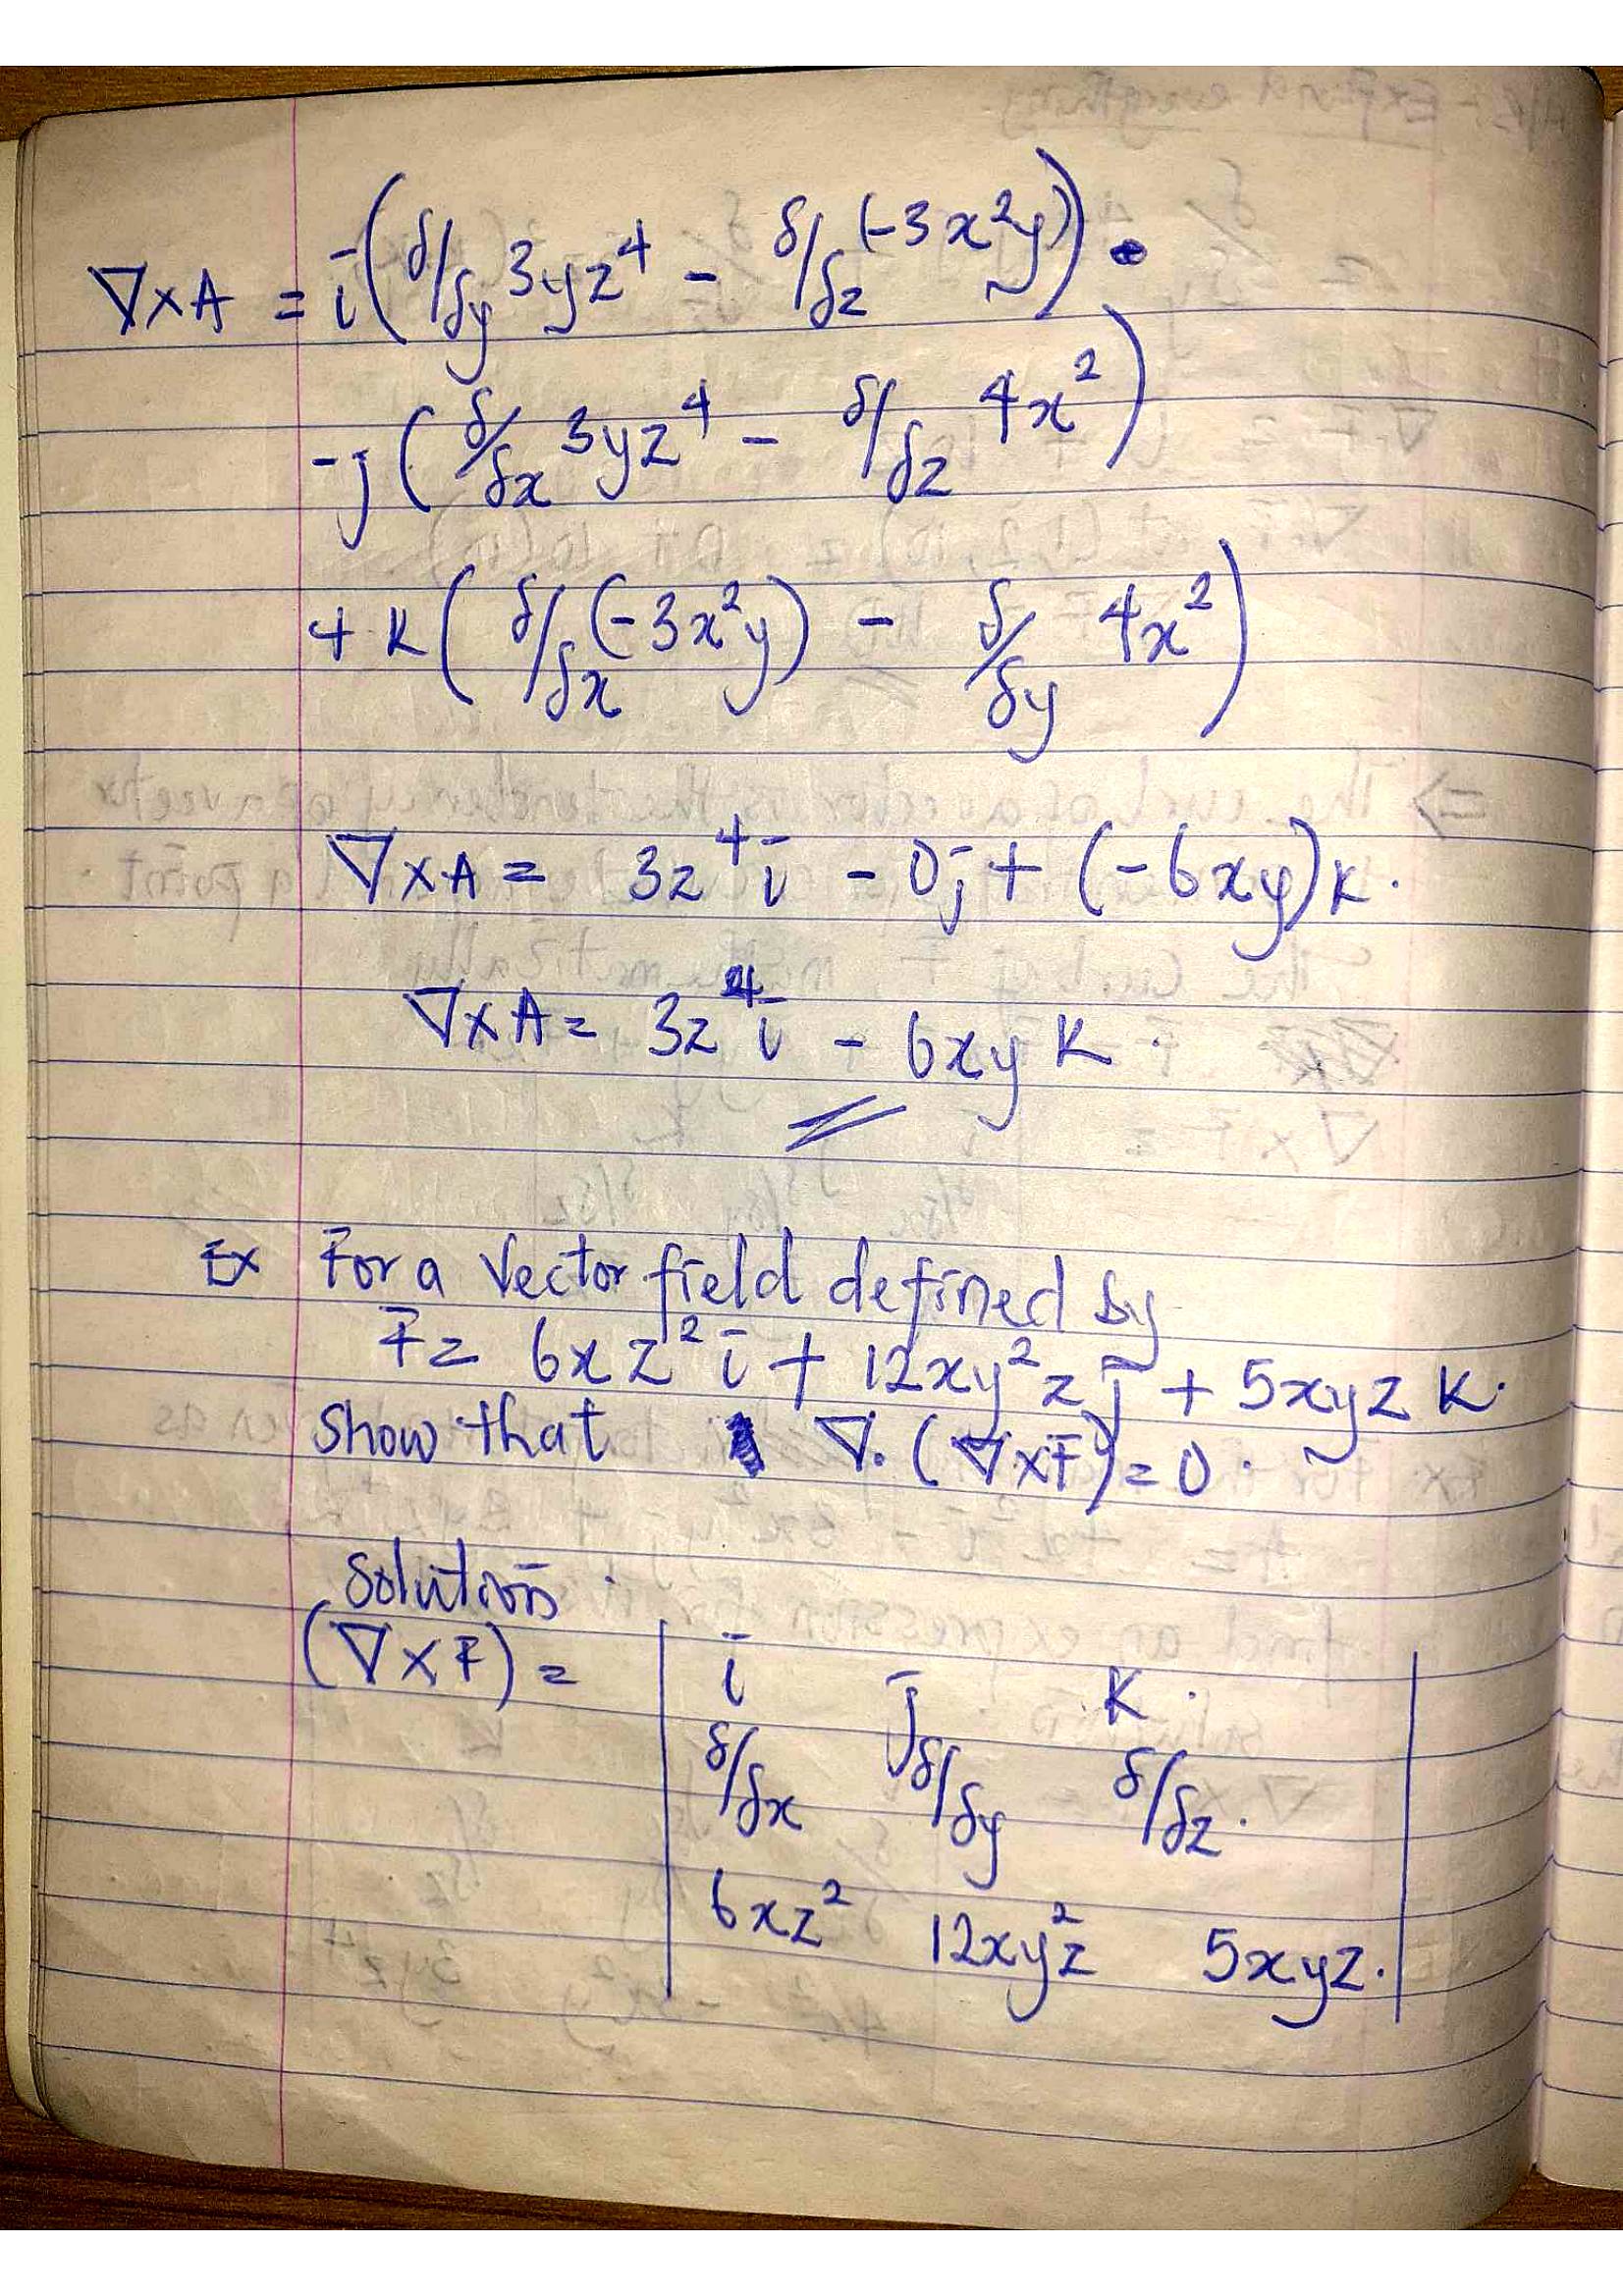 ∇×A = i(δ/δy 3yz⁴ - δ/δz (-3x²y)).
-j(δ/δx 3yz⁴ - δ/δz 4x²)
+ K(δ/δx (-3x²y) - δ/δy 4x²)
∇×A = 3z⁴i - 0j + (-6xy)K.
∇×A = 3z⁴i - 6xy K.
Ex For a vector field defined by
F̄ = 6xz²i + 12xy²z j + 5xyz K.
Show that ∇.(∇×F̄) = 0.
Solution.
(∇×F) = | i j K. |
δ/δx δ/δy δ/δz.
6xz² 12xy²z 5xyz.